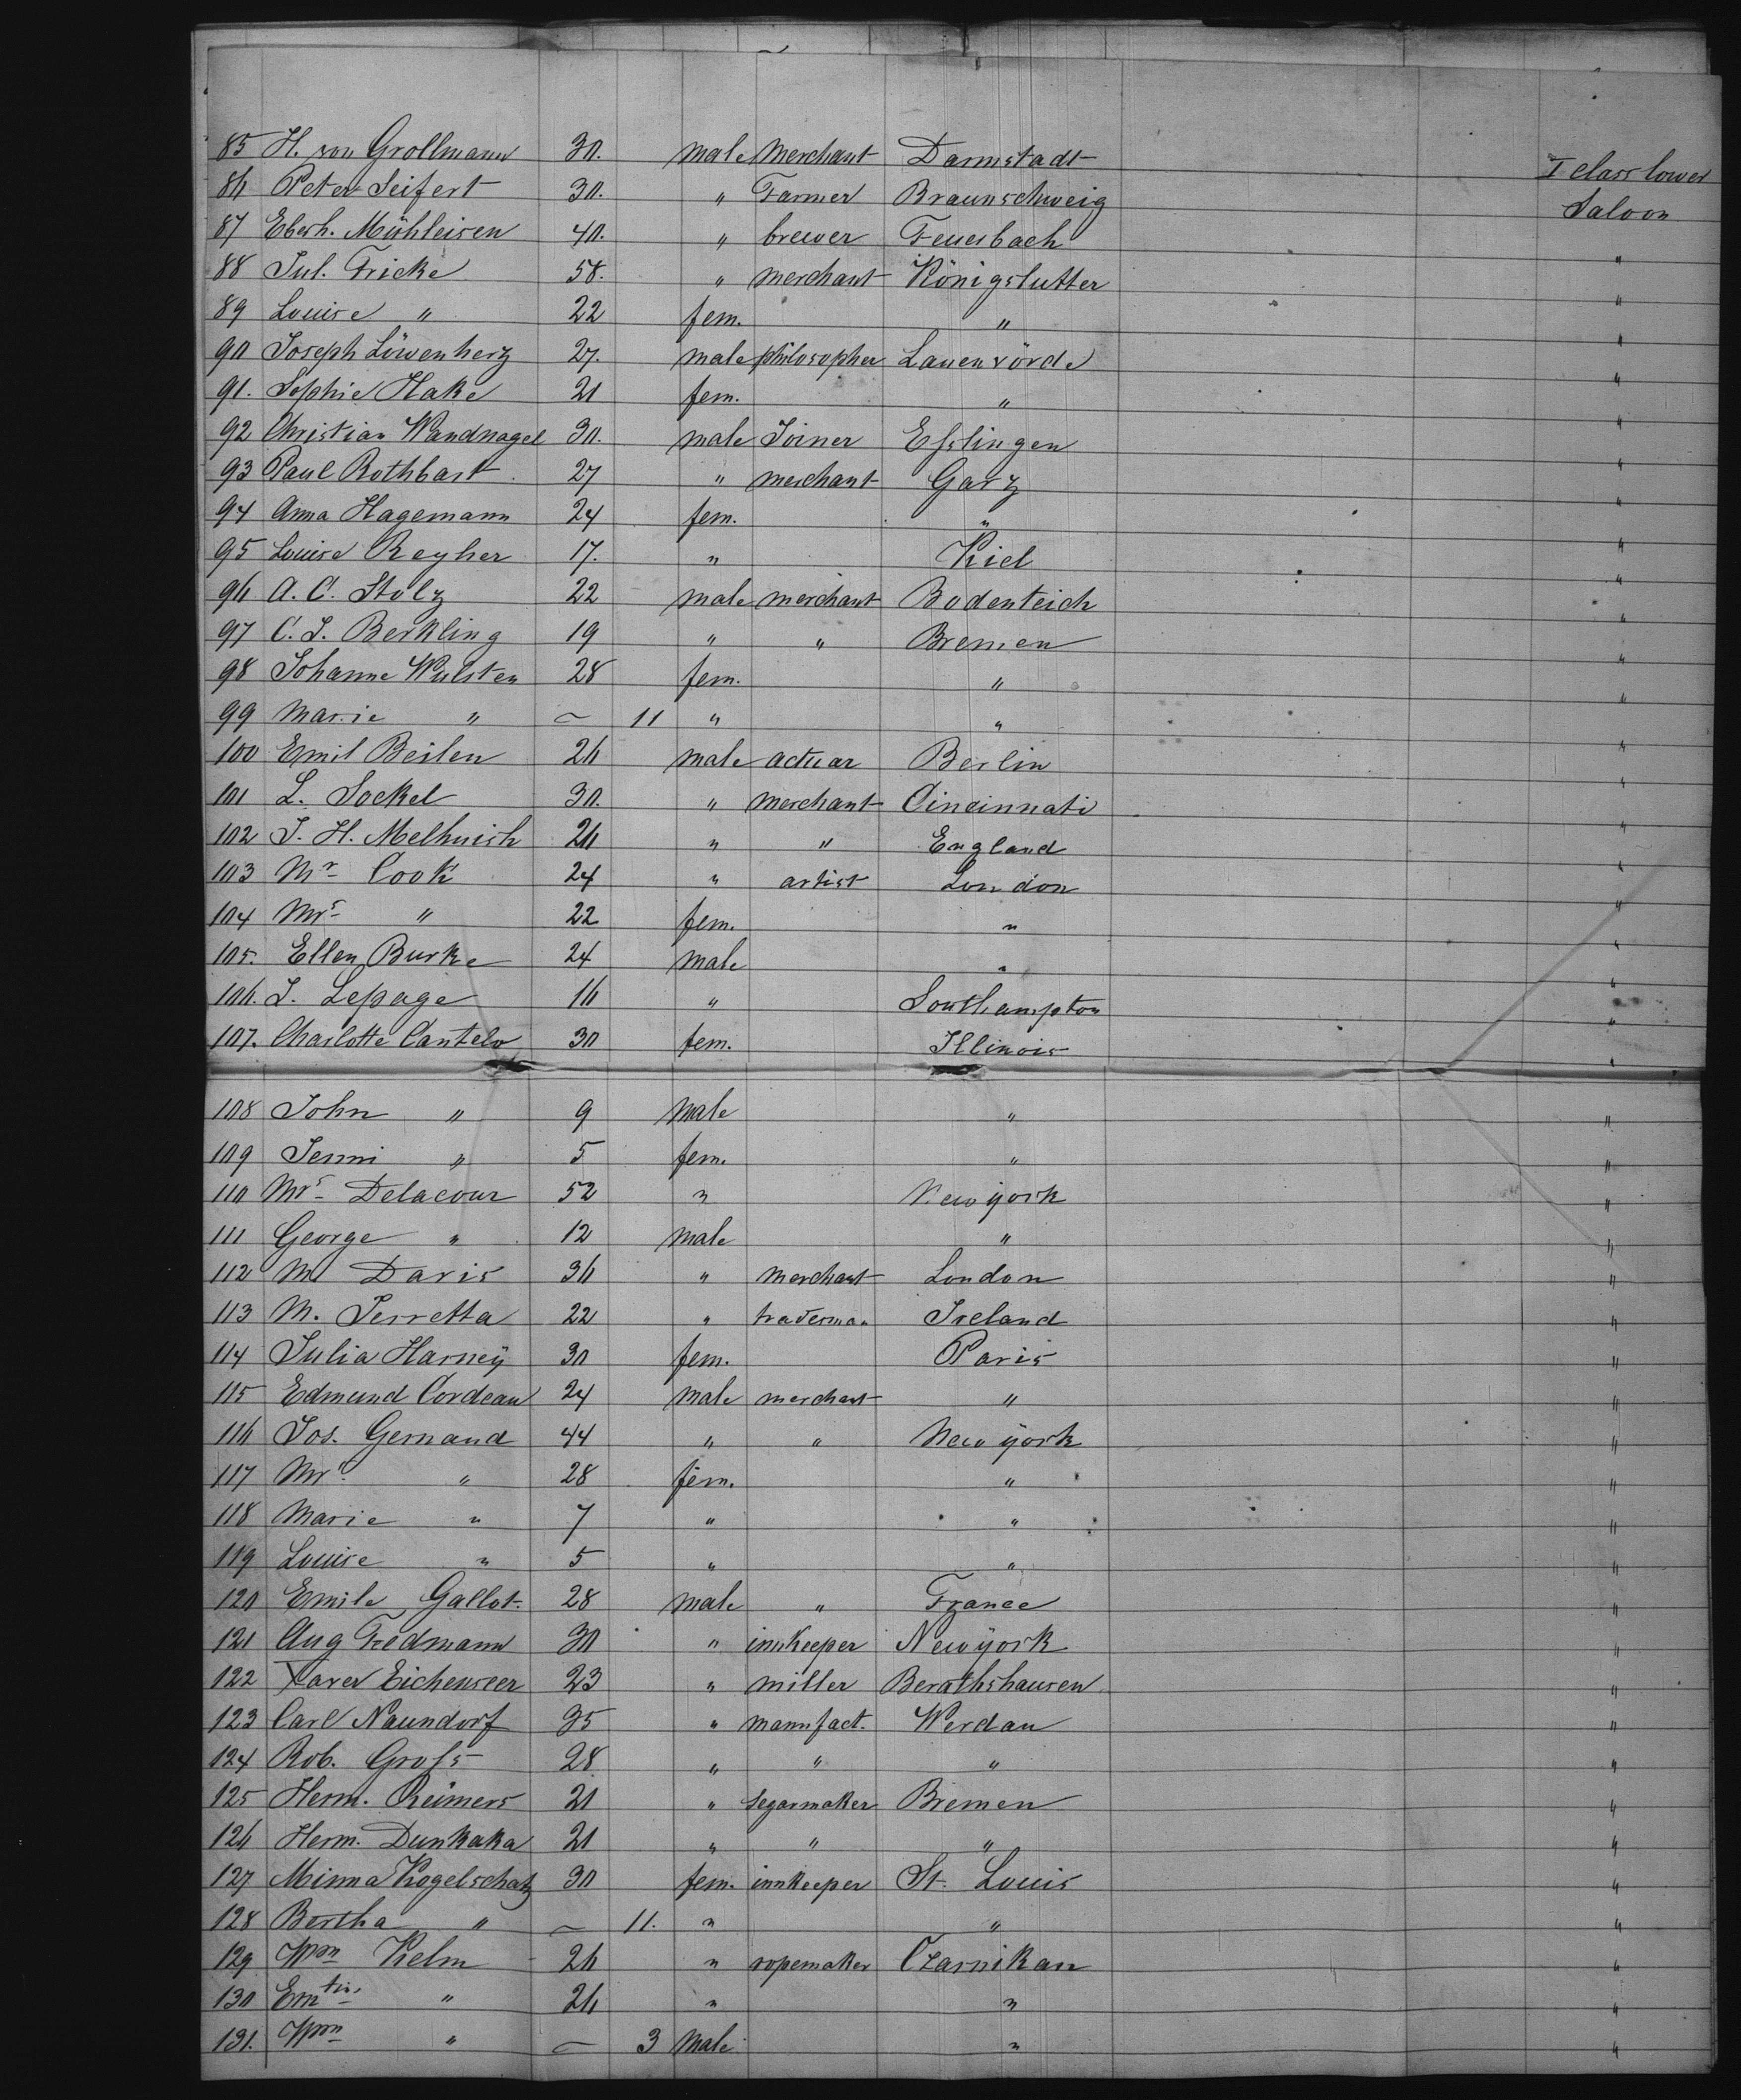 85 H. von Grollmann 30. male Merchant Darmstadt I Class lower
86 Peter Seifert 30. " Farmer Braunschweig Saloon
87 Eberh. Mühleisen 40. " brewer Feuerbach "
88 Jul. Fricke 58. " merchant Königslutter "
89 Louise " 22 fem. " "
90 Joseph Löwenherz 27. male philosopher Lauenvörde "
91. Sophie Hake 21 fem. " "
92 Christian Wandnagel 30. male Joiner Esslingen "
93 Paul Rothbart 27 " merchant Garz "
94 Anna Hagemann 24 fem. " "
95 Louise Reyher 17. " Kiel "
96 A. C. Stolz 22 male merchant Bodenteich "
97 C. J. Berkling 19 " " Bremen "
98 Johanne Wulsten 28 fem. " "
99 Marie " – 11 " " "
100 Emil Beilen 26 male actuar Berlin "
101 L. Sockel 30. " Merchant Cincinnati "
102 J. H. Melhuish 26 " " England "
103 Mr Cook 24 " artist London "
104 Mrs " 22 fem. " "
105. Ellen Burke 24 male " "
106. J. Lepage 16 " Southampton "
107. Charlotte Cantelo 30 fem. Illinois "
108 John " 9 Male " "
109 Jenni " 5 fem. " "
110 Mrs Delacour 52 " New york "
111 George " 12 Male " "
112 M. Davis 36 " Merchant London "
113 M. Jerretta 22 " tradesman Ireland "
114 Julia Harney 30 fem. Paris "
115 Edmund Cordeau 24 Male merchant " "
116 Jos. Gemaud 44 " " New york "
117 Mrs " 28 fem. " "
118 Marie " 7 " " "
119 Louise " 5 " " "
120 Emile Gallot. 28 Male " France "
121 Aug Fredmann 30 " innkeeper New york "
122 Xaver Eichenseer 23 " miller Berathshausen "
123 Carl Naundorf 35 " mannfact. Werdau "
124 Rob. Gross 28 " " " "
125 Herm. Reimers 21 " Segarmaker Bremen "
126 Herm. Dunkaka 21 " " " "
127 Minna Kogelschatz 30 fem. innkeeper St. Louis "
128 Bertha " – 11. " " "
129 Wm Kelm 26 " ropemaker Czarnikau "
130 Emtin. " 26 " " "
131. Wm " – 3 Male " "